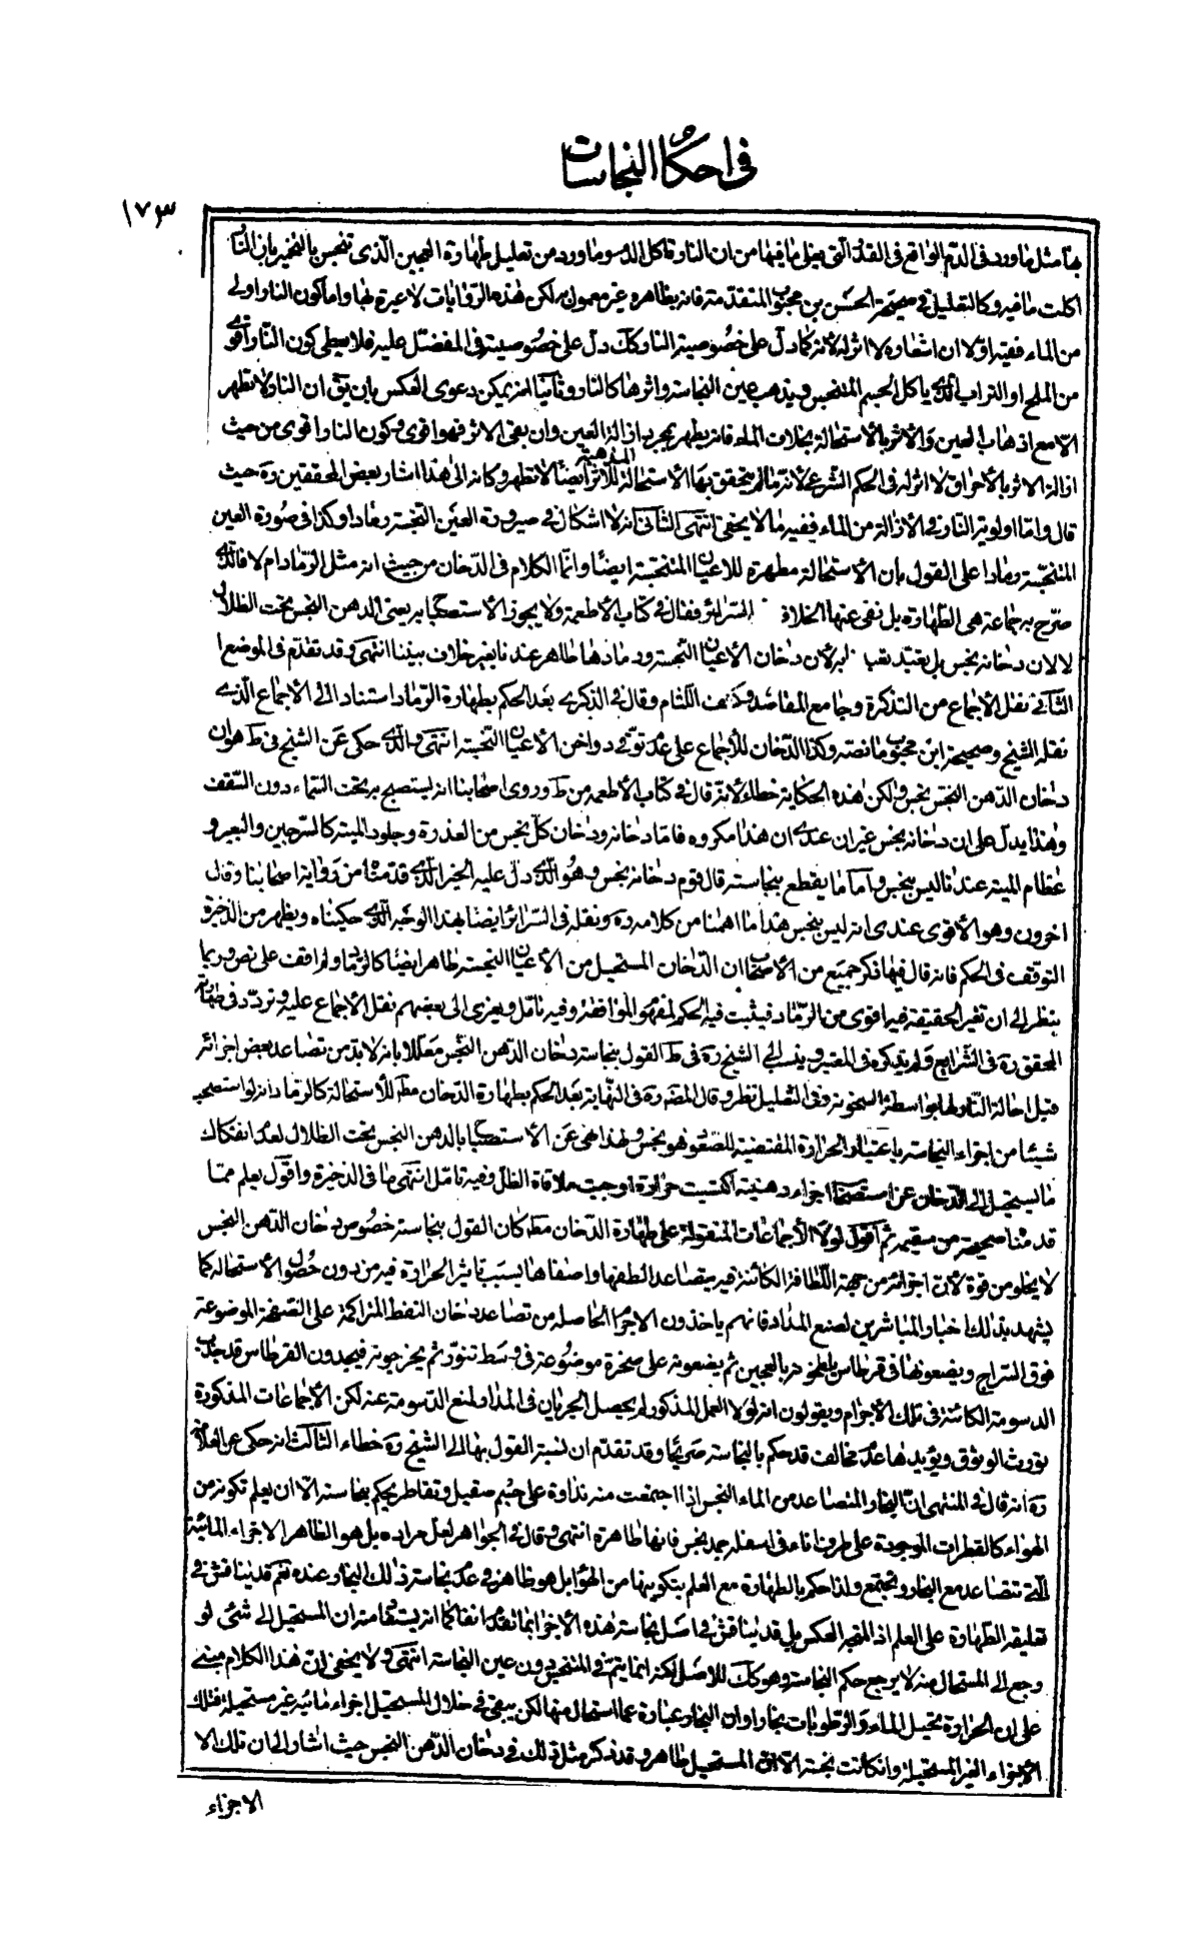 في احكام النجاسات
١٧٣
بها مثل ما ورد في الدم الواقع في القدر التي يغلى ما فيها من ان النار تأكل الدم وما ورد من تعليل طهارة العجين الذي تنجس بالخمير بان النار
اكلت ما فيه وكالتعليل في صحيحة الحسن بن محبوب المتقدمة فانه بظاهره غير معمول به لكن هذه الروايات لا عبرة بها واما كون النار اولى
من الماء ففيه اولا ان اشعاره لا اثر له لانه كما دل على خصوصية النار كك دل على خصوصية في المفضل عليه فلا يعطى كون النار اقوى
من الملح او التراب الذي يأكل الجسم المتنجس ويذهب عين النجاسة واثرها كالنار وثانيا انه يمكن دعوى العكس بان يق ان النار لا تطهر
الا مع اذهاب العين والاثر بالاستحالة بخلاف الماء فانه يطهر بمجرد ازالة العين وان بقى الاثر فهو اقوى وكون النار اقوى من حيث
المذهبة
ازالة الاثر بالاحراق لا اثر له في الحكم الشرعي لانه ما لم يتحقق بها الاستحالة للاثر ايضا لا تطهر وكانه الى هذا اشار بعض المحققين ره حيث
قال واما اولوية النار في الازالة من الماء ففيه ما لا يخفى انتهى الثاني انه لا اشكال في صيرورة العين النجسة رمادا وكذا في صورة العين
المتنجسة رمادا على القول بان الاستحالة مطهرة للاعيان المتنجسة ايضا وانما الكلام في الدخان من حيث انه مثل الرماد ام لا فالذي
صرح به جماعة هي الطهارة بل نفى عنها الخلاف السرائر فقال في كتاب الاطعمة ولا يجوز الاستصباح به يعني الدهن النجس تحت الظلال
لا لان دخانه نجس بل تعبد تعبد به لان دخان الاعيان النجسة ورمادها طاهر عندنا بغير خلاف بيننا انتهى وقد تقدم في الموضع
الثاني نقل الاجماع من التذكرة وجامع المقاصد وكشف اللثام وقال في الذكرى بعد الحكم بطهارة الرماد استنادا الى الاجماع الذي
نقله الشيخ وصحيحة ابن محبوب ما نصه وكذا الدخان للاجماع على عدم توقي دواخن الاعيان النجسة انتهى والذي حكى عن الشيخ في ط هو ان
دخان الدهن النجس نجس ولكن هذه الحكاية خطاء لانه قال في كتاب الاطعمة من ط وروى اصحابنا انه يستصبح به تحت السماء دون السقف
وهذا يدل على ان دخانه نجس غير ان عندي ان هذا مكروه فاما دخانه ودخان كل نجس من العذرة وجلود الميتة كالسرجين والبعر و
عظام الميتة عندنا ليس بنجس واما ما يقطع بنجاسته قال قوم دخانه نجس وهو الذي دل عليه الخبر الذي قدمناه من رواية اصحابنا وقال
اخرون وهو الاقوى عندي انه ليس بنجس هذا ما اهمنا من كلامه ره ونقله في السرائر ايضا بهذا الوجه الذي حكيناه ويظهر من الذخيرة
التوقف في الحكم فانه قال فيها ذكر جمع من الاصحاب ان الدخان المستحيل من الاعيان النجسة طاهر ايضا كالرماد ولم اقف على نص وربما
ينظر الى ان تغير الحقيقة فيه اقوى من الرماد فيثبت فيه الحكم لمفهوم الموافقة وفيه تأمل ويعزى الى بعضهم نقل الاجماع عليه وتردد في طهارته
المحقق ره في الشرايع ولم يذكره في المعتبر وينسب الى الشيخ ره في ط القول بنجاسة دخان الدهن النجس معللا بانه لا بد من تصاعد بعض اجزائه
قبل احالة النار لها بواسطة السخونة وفي التعليل نظر وقال المصره في النهاية بعد الحكم بطهارة الدخان مط للاستحالة كالرماد انه لو استصحب
شيئا من اجزاء النجاسة باعتبار الحرارة المقتضية للصعود فهو نجس ولهذا نهى عن الاستصباح بالدهن النجس تحت الظلال لعدم انفكاك
ما يستحيل الى الدخان عن استصحاب اجزاء دهنية اكتسبت حرارة اوجبت ملاقاة الظل وفيه تامل انتهى ما في الذخيرة واقول يعلم مما
قدمنا صحيحه من سقيمه ثم اقول لولا الاجماعات المنقولة على طهارة الدخان مط كان القول بنجاسة خصوص دخان الدهن النجس
لا يخلو من قوة لان اجزائه من جهة اللطافة الكائنة فيه يتصاعد الطفها واصفاها بسبب تاثير الحرارة فيه من دون حصول الاستحالة كما
يشهد بذلك اخبار المباشرين لصنع المداد فانهم يأخذون الاجرام الحاصلة من تصاعد دخان النفط المتراكمة على الصفحة الموضوعة
فوق السراج ويضعونها في قرطاس يلطخونه بالعجين ثم يضعونه على صخرة موضوعة في وسط تنور ثم يخرجونه فيجدون القرطاس قد جذب
الدسومة الكائنة في تلك الاجرام ويقولون انه لولا العمل المذكور لم يحصل الجريان في المداد لمنع الدسومة عنه لكن الاجماعات المذكورة
تورث الوثوق ويؤيدها عدم مخالف قد حكم بالنجاسة صريحا وقد تقدم ان نسبة القول بها الى الشيخ ره خطاء الثالث انه حكى عن العلامة
ره انه قال في المنتهى ان البخار المتصاعد من الماء النجس اذا اجتمعت منه نداوة على جسم صقيل وتقاطر يحكم بنجاسته الا ان يعلم تكونه من
الهواء كالقطرات الموجودة على طرف اناء في اسفله جمد نجس فانها طاهرة انتهى وقال في الجواهر لعل مراده بل هو الظاهر الاجزاء المائية
التي تتصاعد مع البخار وتجتمع ولذا حكم بالطهارة مع العلم بتكونها من الهواء بل هو ظاهر في عدم نجاسة ذلك البخار عنده نعم قد يناقش في
تعليقه الطهارة على العلم اذ المتجه العكس بل قد يناقش في اصل نجاسة هذه الاجزاء بما تقدم انفا كما انه يستفاد منه ان المستحيل الى شئ لو
رجع الى المستحال منه لا يرجع حكم النجاسة وهو كك للاصل لكنه انما يتم في المتنجس دون عين النجاسة انتهى ولا يخفى ان هذا الكلام مبني
على ان الحرارة تحيل الماء والرطوبات بخارا وان البخار عبارة عما استحال منها لكن يبقى في خلال المستحيل اجزاء مائية غير مستحيلة فتلك
الاجزاء الغير المستحيلة وان كانت نجسة الا ان المستحيل طاهر وقد ذكر مثل ذلك في دخان الدهن النجس حيث اشار الى ان تلك الا
الاجزاء